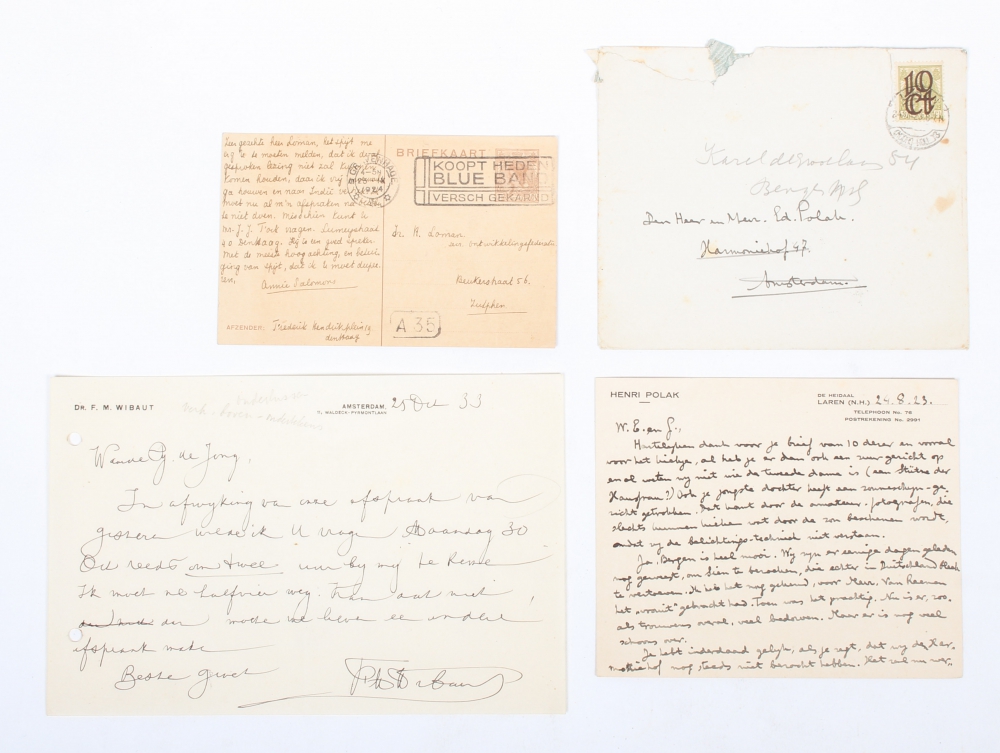 Zeer geachte heer Loman, het spijt me
erg u te moeten melden, dat ik de af-
gesproken lezing niet zal kunnen
komen houden, daar ik vrij
ga trouwen en naar Indië
moet me al m'n afspraken
te niet doen. Misschien kunt u
Lumeijstraat
Den Haag. Hij is een goed spreker.
Met de meeste hoogachting, en betui-
ging van spijt, dat ik u moet
Annie Salomons
AFZENDER: Frederik Hendrikplein
den Haag
BRIEFKAART
1924
KOOPT HEDEN
BLUE BAND
VERSCH GEKARND
Dr. H. Loman
secr. ontwikkelingsfederatie
Beukerstraat 56.
Zutphen
A 35
10
Ct
Karel de grootelaan 54
Bergen
Den Heer en Mevr. Ed. Polak.
Harmoniehof 47.
Amsterdam.
DR. F. M. WIBAUT
AMSTERDAM, 25 Oct 33
WALDECK-PYRMONTLAAN
Waarde de Jong,
In afwijking van onze afspraak van
gisteren wilde ik U vragen Maandag 30
Oct reeds om twee uur bij mij te
Ik moet half vier weg. Kan dat niet,
dan moeten we liever een andere
afspraak maken
Beste groet
FM Wibaut
HENRI POLAK
DE HEIDAAL
LAREN (N.H.) 24.8.23.
TELEPHOON No. 76
POSTREKENING No. 2991
W. E. en G.,
Hartelijken dank voor je brief van 10 dezer en vooral
voor het kiekje, al heb je er dan ook een zuur gezicht op
en al weten wij niet wie de tweede dame is (een Stütze der
Hausfrau?) Ook je jongste dochter heeft een zonneschijn-ge-
zicht getrokken. Dat komt door de amateur-fotografen, die
slechts kunnen kieken wat door de zon beschenen wordt,
omdat zij de belichtings-techniek niet verstaan.
Ja, Bergen is heel mooi. Wij zijn er eenige dagen geleden
nog geweest, om Sien te bezoeken, die achter in Duitschland
te vertoeven. Ik heb het nog gekend, voor Mevr. Van Reenen
het "vooruit" gebracht had. Toen was het prachtig. Nu is er, zoo-
als trouwens overal, veel bedorven. Maar er is nog veel
schoons over.
Je hebt inderdaad gelijk, als je zegt, dat wij de Har-
moniehof nog steeds niet bezocht hebben. Het zal nu ver-